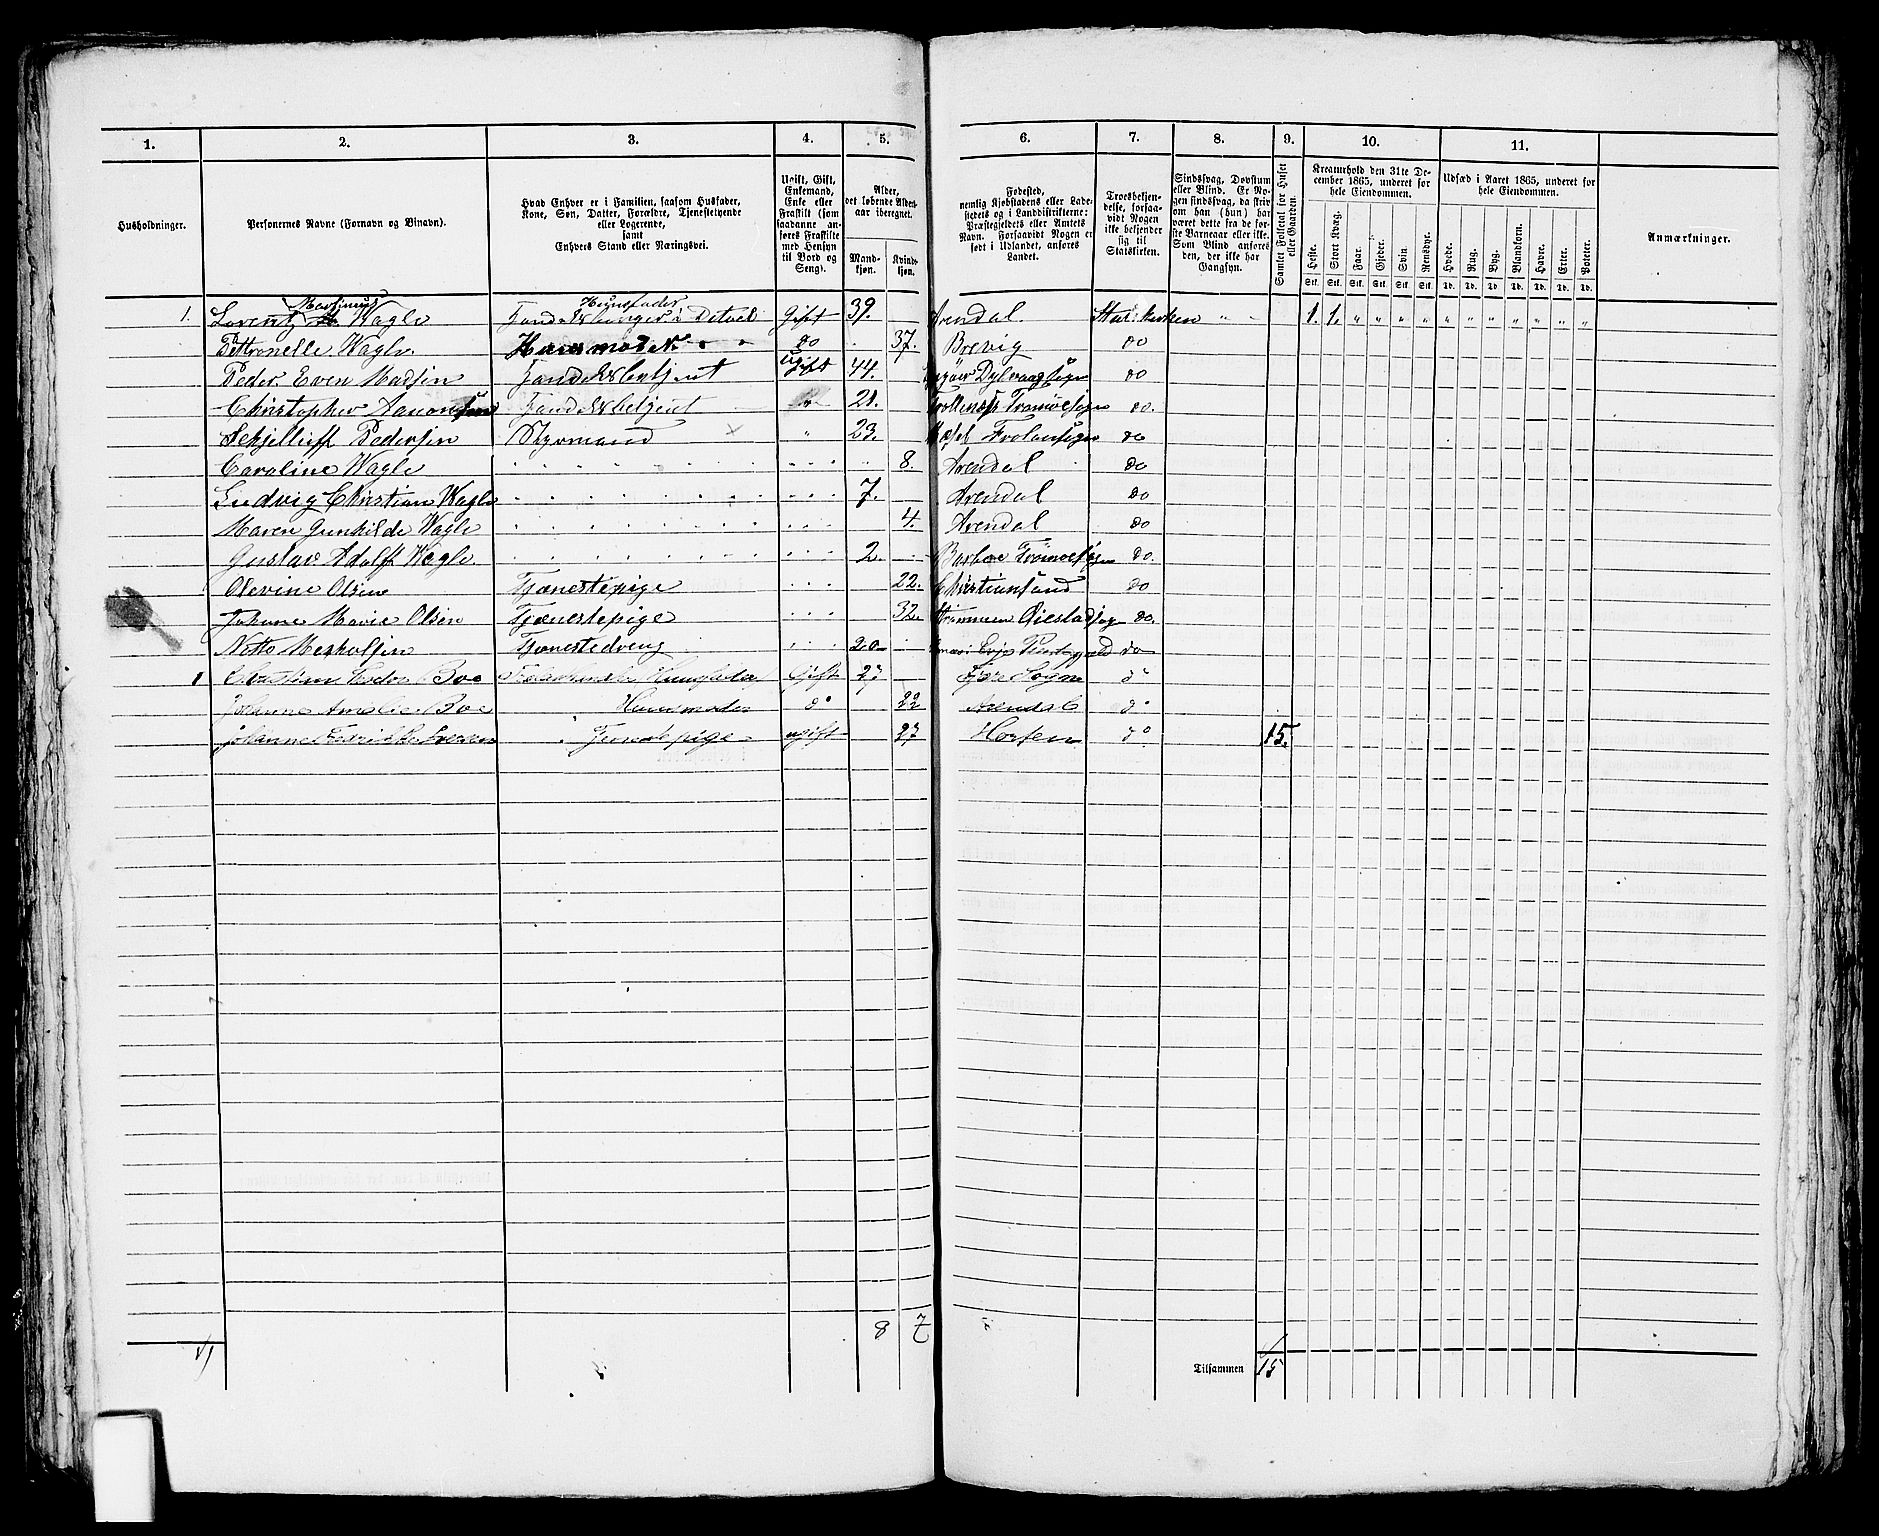 1. 2. 3. 4. 5. 6. 7. 8. 9. 10. 11.
Husholdninger.
Personernes Navne (Fornavn og Binavn).
Hvad Enhver er i Familien, saasom Husfader, Kone, Søn, Datter, Forældre, Tjenestetyende eller Logerende, samt Enhvers Stand eller Næringsvei.
Ugift, Gift, Enkemand, Enke eller Fraskilt (som saadanne anføres Fraskilte med Hensyn til Bord og Seng).
Alder, det løbende Alders-aar iberegnet.
Mandkjøn. Kvindekjøn.
Fødested, nemlig Kjøbstadens eller Ladestedets og i Landdistrikterne: Præstegjeldets eller Amtets Navn. Forsaavidt Nogen er født i Udlandet, anføres Landet.
Troesbekjendelse, forsaavidt Nogen ikke bekjender sig til Statskirken.
Sindssvag, Døvstum eller Blind. Er Nogen sindssvag, da skriv om han (hun) har været dette fra de første Barneaar eller ikke. Som Blind anføres den, der ikke har Gangsyn.
Samlet Folketal for Huset eller Gaarden.
Kreaturhold den 31te December 1865, underet for hele Eiendommen.
Heste. Stort Kvæg. Faar. Gjeder. Svin. Rensdyr.
Stk. Stk. Stk. Stk. Stk. Stk.
Udsæd i Aaret 1865, underet for hele Eiendommen.
Hvede. Rug. Byg. Blandkorn. Havre. Erter. Poteter.
Td. Td. Td. Td. Td. Td. Td.
Anmærkninger.
Martinius Husfader
1. Lorentz Wagle Handelsborger i Detail Gift 39. Arendal Statskirken " " 1. 1. " " " " " " " " " " "
Pettronelle Wagle Huusmoder do 37. Brevig do
Peder Even Madsen Handelsbetjent Ugift 44. Dybvaag Sogn do
Christopher Aanonsen Handelsbetjent 21. Tromøe Sogn do.
Pedersen Styrmand " 23. Froland Sogn do
Caroline Wagle 8. Arendal do
Ludvig Christian Wagle 7. Arendal do
Maren Gunhilde Wagle 4. Arendal do
Gustav Adolf Wagle 2. Barboe Tromøe Sogn do.
Olevine Olsen Tjenestepige 22. Christiansand do
Johanne Marie Olsen Tjenestepige 32. Øiestad Sogn do.
Tjenestedreng 20 do
1 Boe Gift 27 Sogn do
Johanne Amalie Boe Huusmoder do 22 Arendal do
Johanne Fredrikke Tjenestepige ugift 27 Horten do 15.
8 7
Tilsammen 15